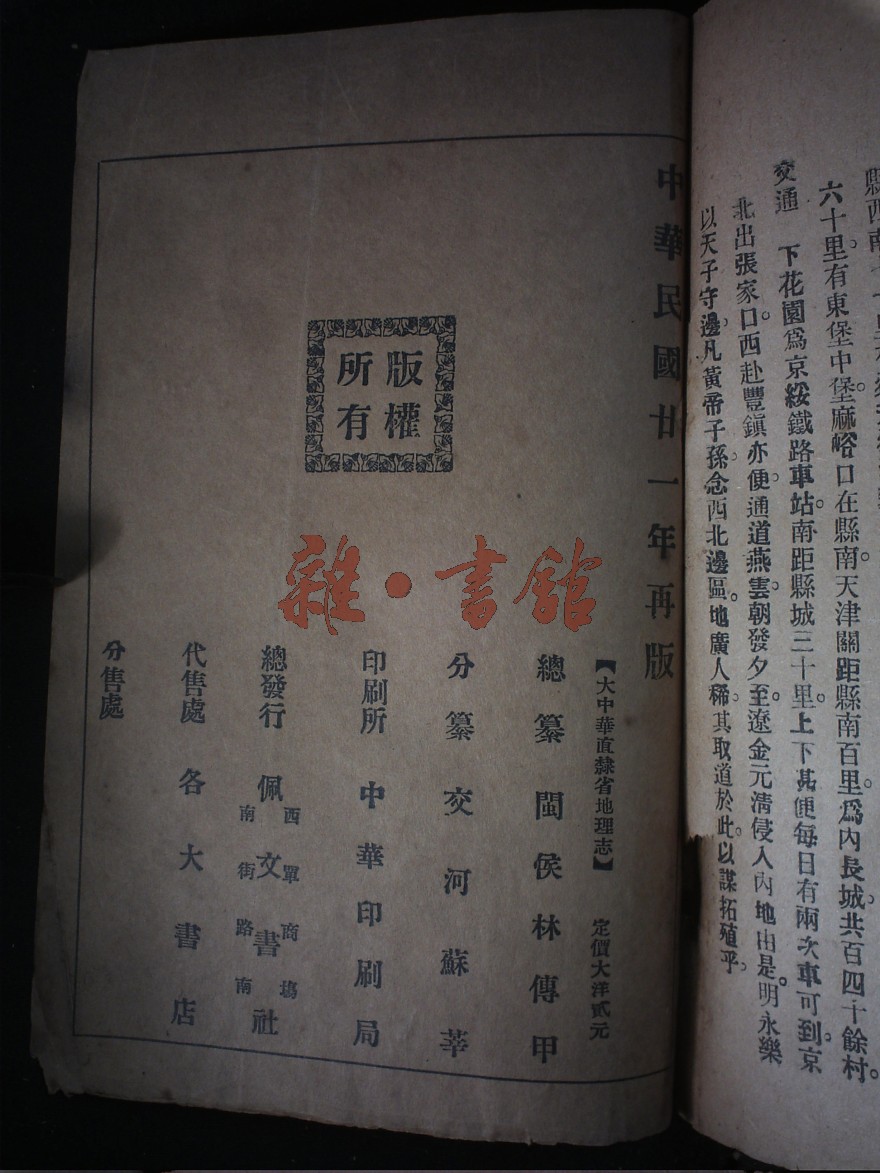 六十里有東堡中堡。麻峪口在縣南。天津關距縣南百里。爲內長城。共百四十餘村。
交通　下花園爲京綏鐵路車站。南距縣城三十里。上下甚便。每日有兩次車可到京
北出張家口。西赴豐鎮亦便。通道燕雲。朝發夕至。遼金元淸侵入內地由是。明永樂
以天子守邊。凡黃帝子孫。念西北邊區。地廣人稀。其取道於此。以謀拓殖乎。
中華民國廿一年再版
【大中華直隸省地理志】　定價大洋貳元
總纂　閩侯林傳甲
分纂　交河蘇莘
印刷所　中華印刷局
總發行　佩文書社
西單商塲
南街路南
代售處　各大書店
分售處
版權
所有
雜·書館